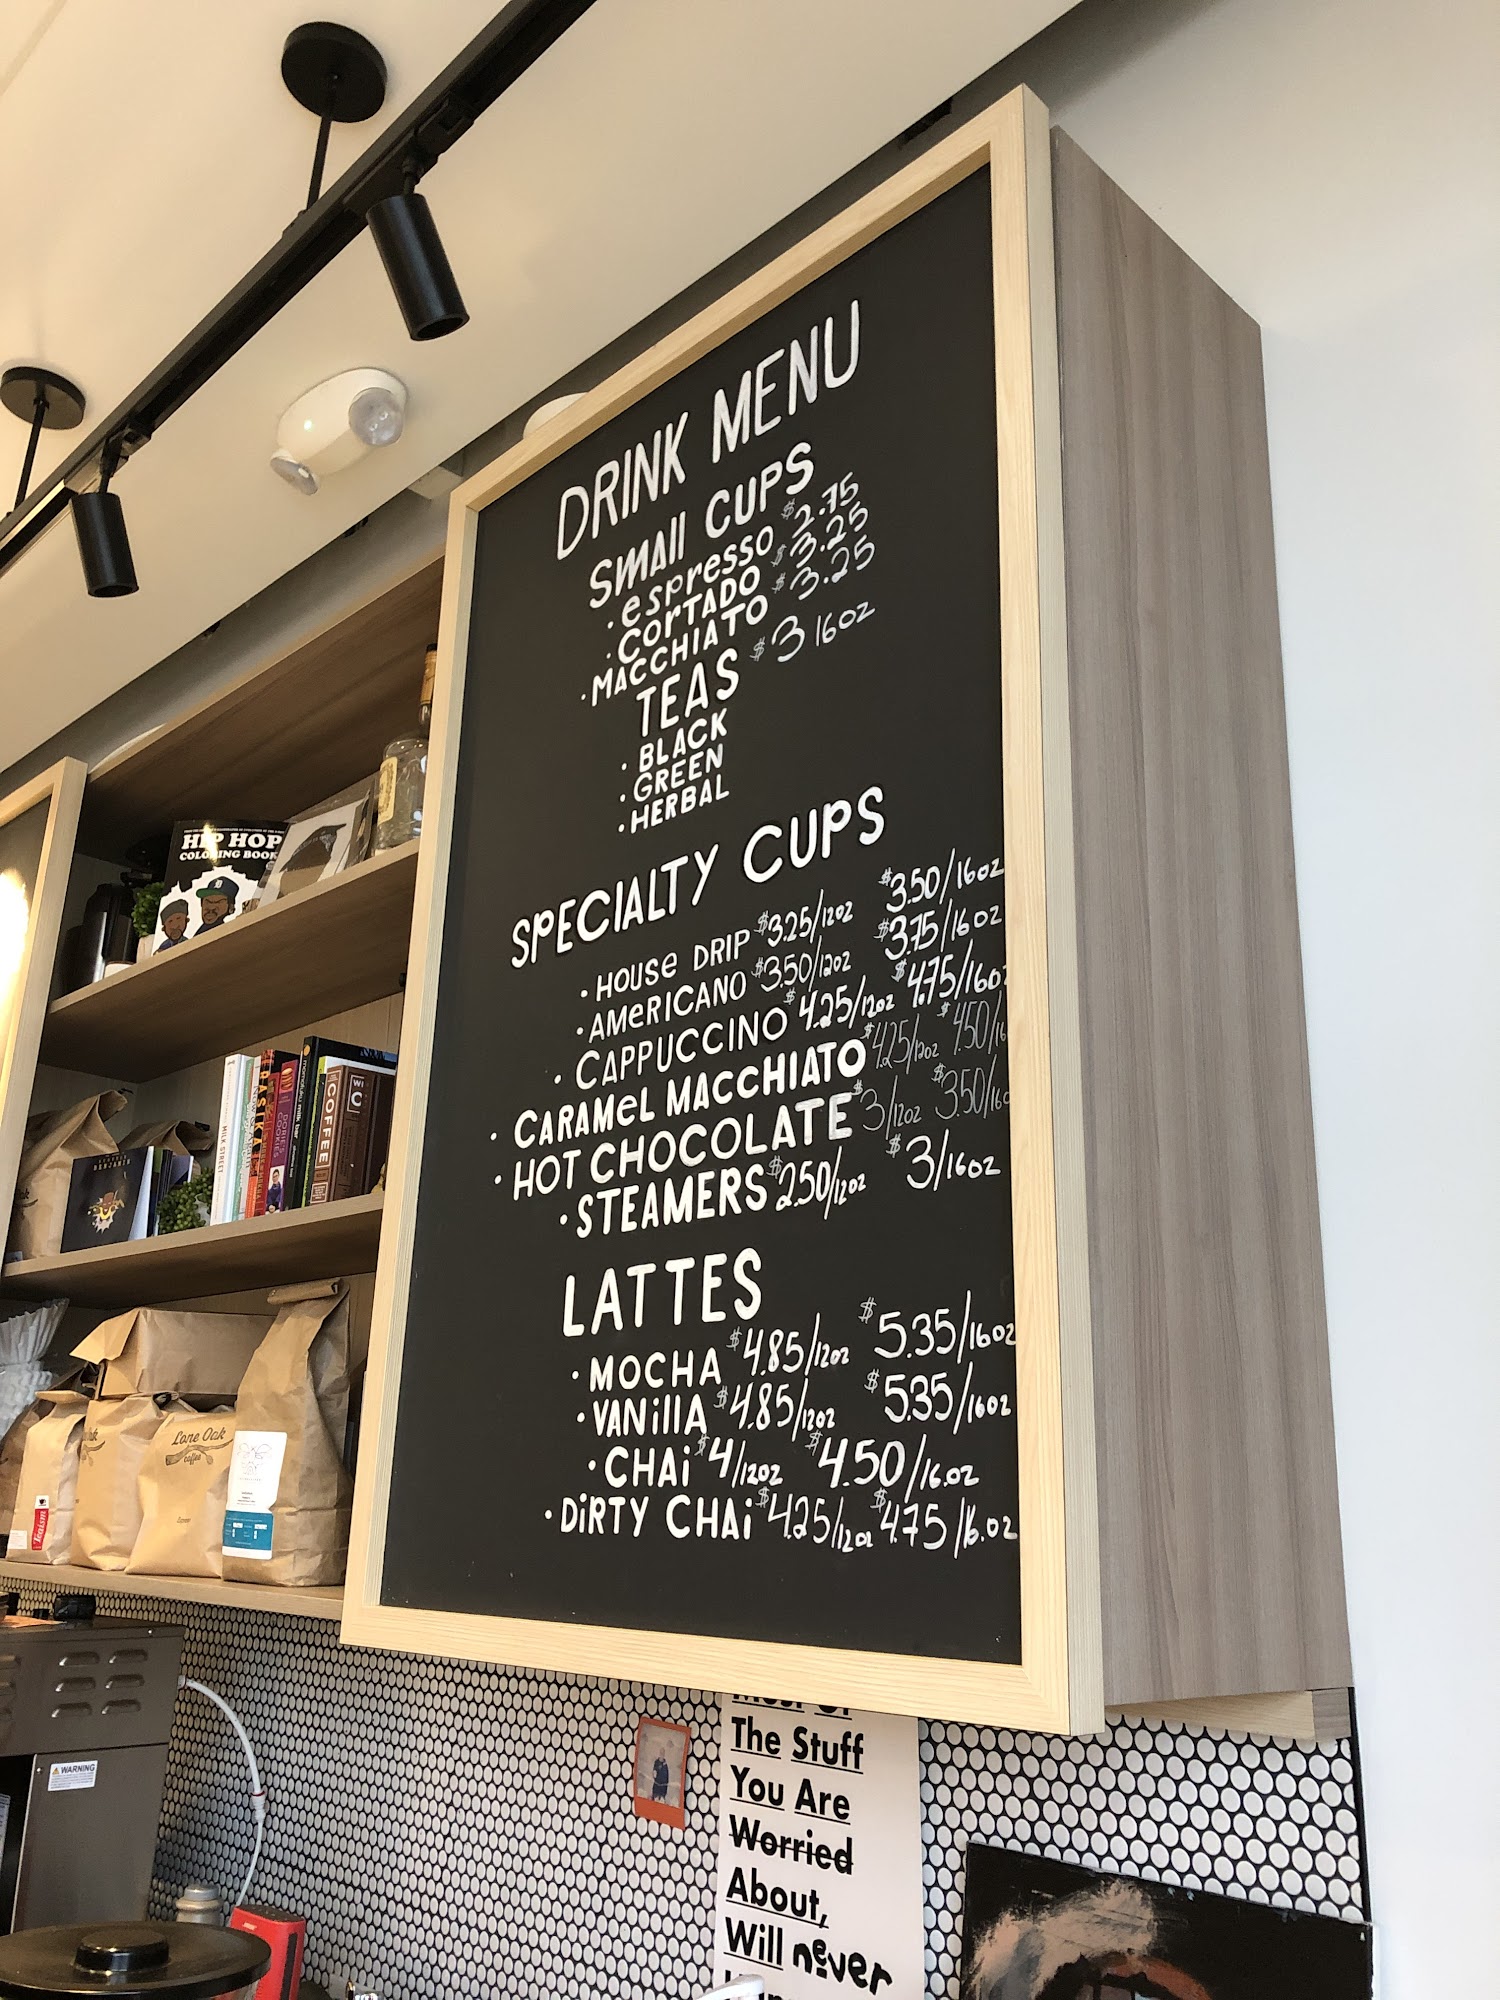 DRINK MENU
SMAll CUPS
· espresso $2.75
· CorTADO $3.25
· MACCHIATO $3.25
TEAS $3 16oz
· BLACK
· GREEN
· HERBAL
SPECIALTY CUPS
· HOUSe DRIP $3.25/12oz $3.50/16oz
· AMeRICANO $3.50/12oz $3.75/16oz
· CAPPUCCINO $4.25/12oz $4.75/16oz
· CARAMeL MACCHIATO $4.25/12oz $4.50/16
· HOT CHOCOLATE $3/12oz $3.50/16o
· STEAMERS $2.50/12oz $3/16oz
LATTES
· MOCHA $4.85/12oz $5.35/16oz
· VANillA $4.85/12oz $5.35/16oz
· CHAi $4/12oz $4.50/16.oz
· DiRTY CHAi $4.25/12oz $4.75/16.oz
HIP HOP
COLORING BOOK
MILK STREET
RASIKA
DORIE'S COOKIES
momofuku milk bar
COFFEE
BENJAMIN
Lone Oak
coffee
Teaism
WARNING
The Stuff
You Are
Worried
About,
Will never